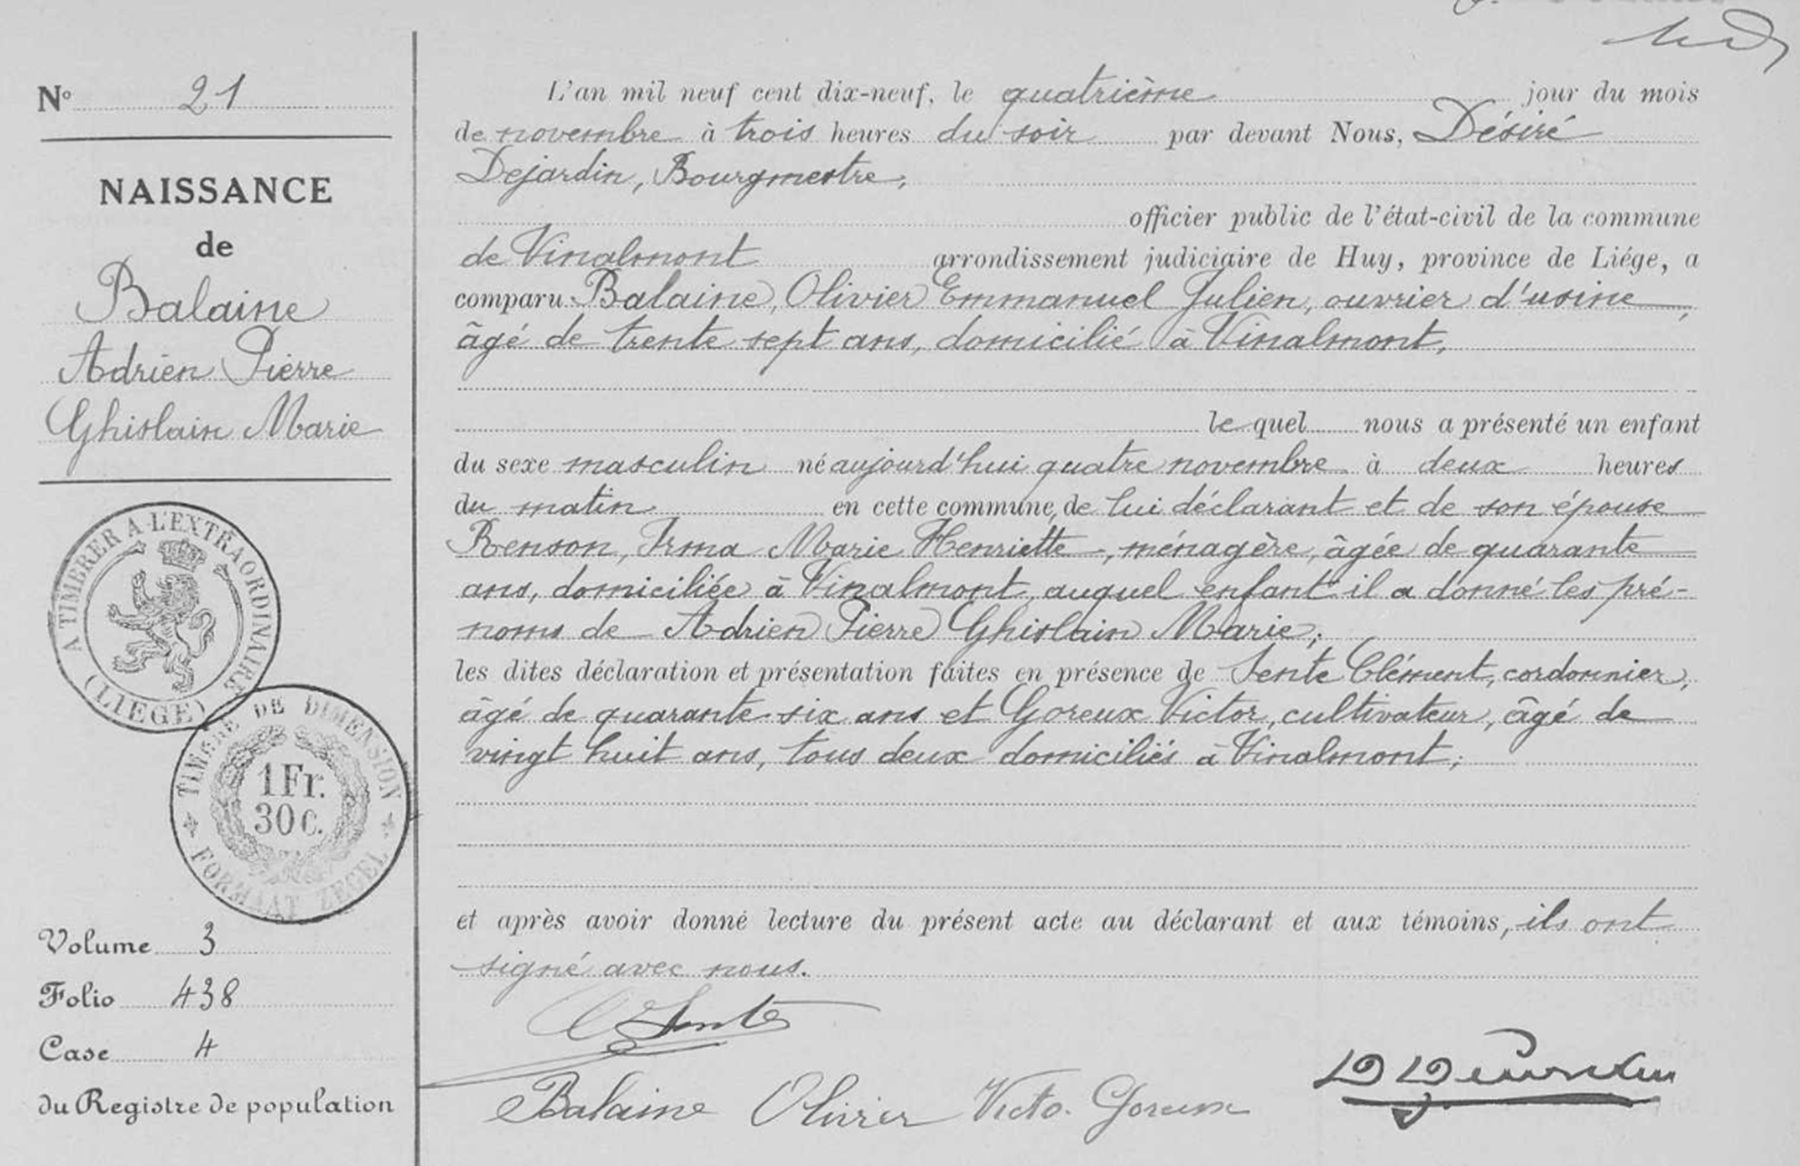 N° 21
NAISSANCE
de
Balaine
Adrien Pierre
Ghislain Marie
A TIMBRER A L'EXTRAORDINAIRE
(LIEGE)
TIMBRE DE DIMENSION
1 Fr.
30 c.
FORMAAT ZEGEL
Volume 3
Folio 438
Case 4
du Registre de population
L'an mil neuf cent dix-neuf, le quatrième jour du mois
de novembre à trois heures du soir par devant Nous, Désiré
Dejardin, Bourgmestre,
officier public de l'état-civil de la commune
de Vinalmont arrondissement judiciaire de Huy, province de Liége, a
comparu Balaine, Olivier Emmanuel Julien, ouvrier d'usine,
âgé de trente sept ans, domicilié à Vinalmont,
lequel nous a présenté un enfant
du sexe masculin né aujourd'hui quatre novembre à deux heures
du matin en cette commune, de lui déclarant et de son épouse
Renson, Irma Marie Henriette, ménagère, âgée de quarante
ans, domiciliée à Vinalmont, auquel enfant il a donné les pré-
noms de Adrien Pierre Ghislain Marie;
les dites déclaration et présentation faites en présence de Sente Clément, cordonnier,
âgé de quarante-six ans et Goreux Victor, cultivateur, âgé de
vingt huit ans, tous deux domiciliés à Vinalmont;
et après avoir donné lecture du présent acte au déclarant et aux témoins, ils ont
signé avec nous.
C Sente
Balaine Olivier Victo. Goreux